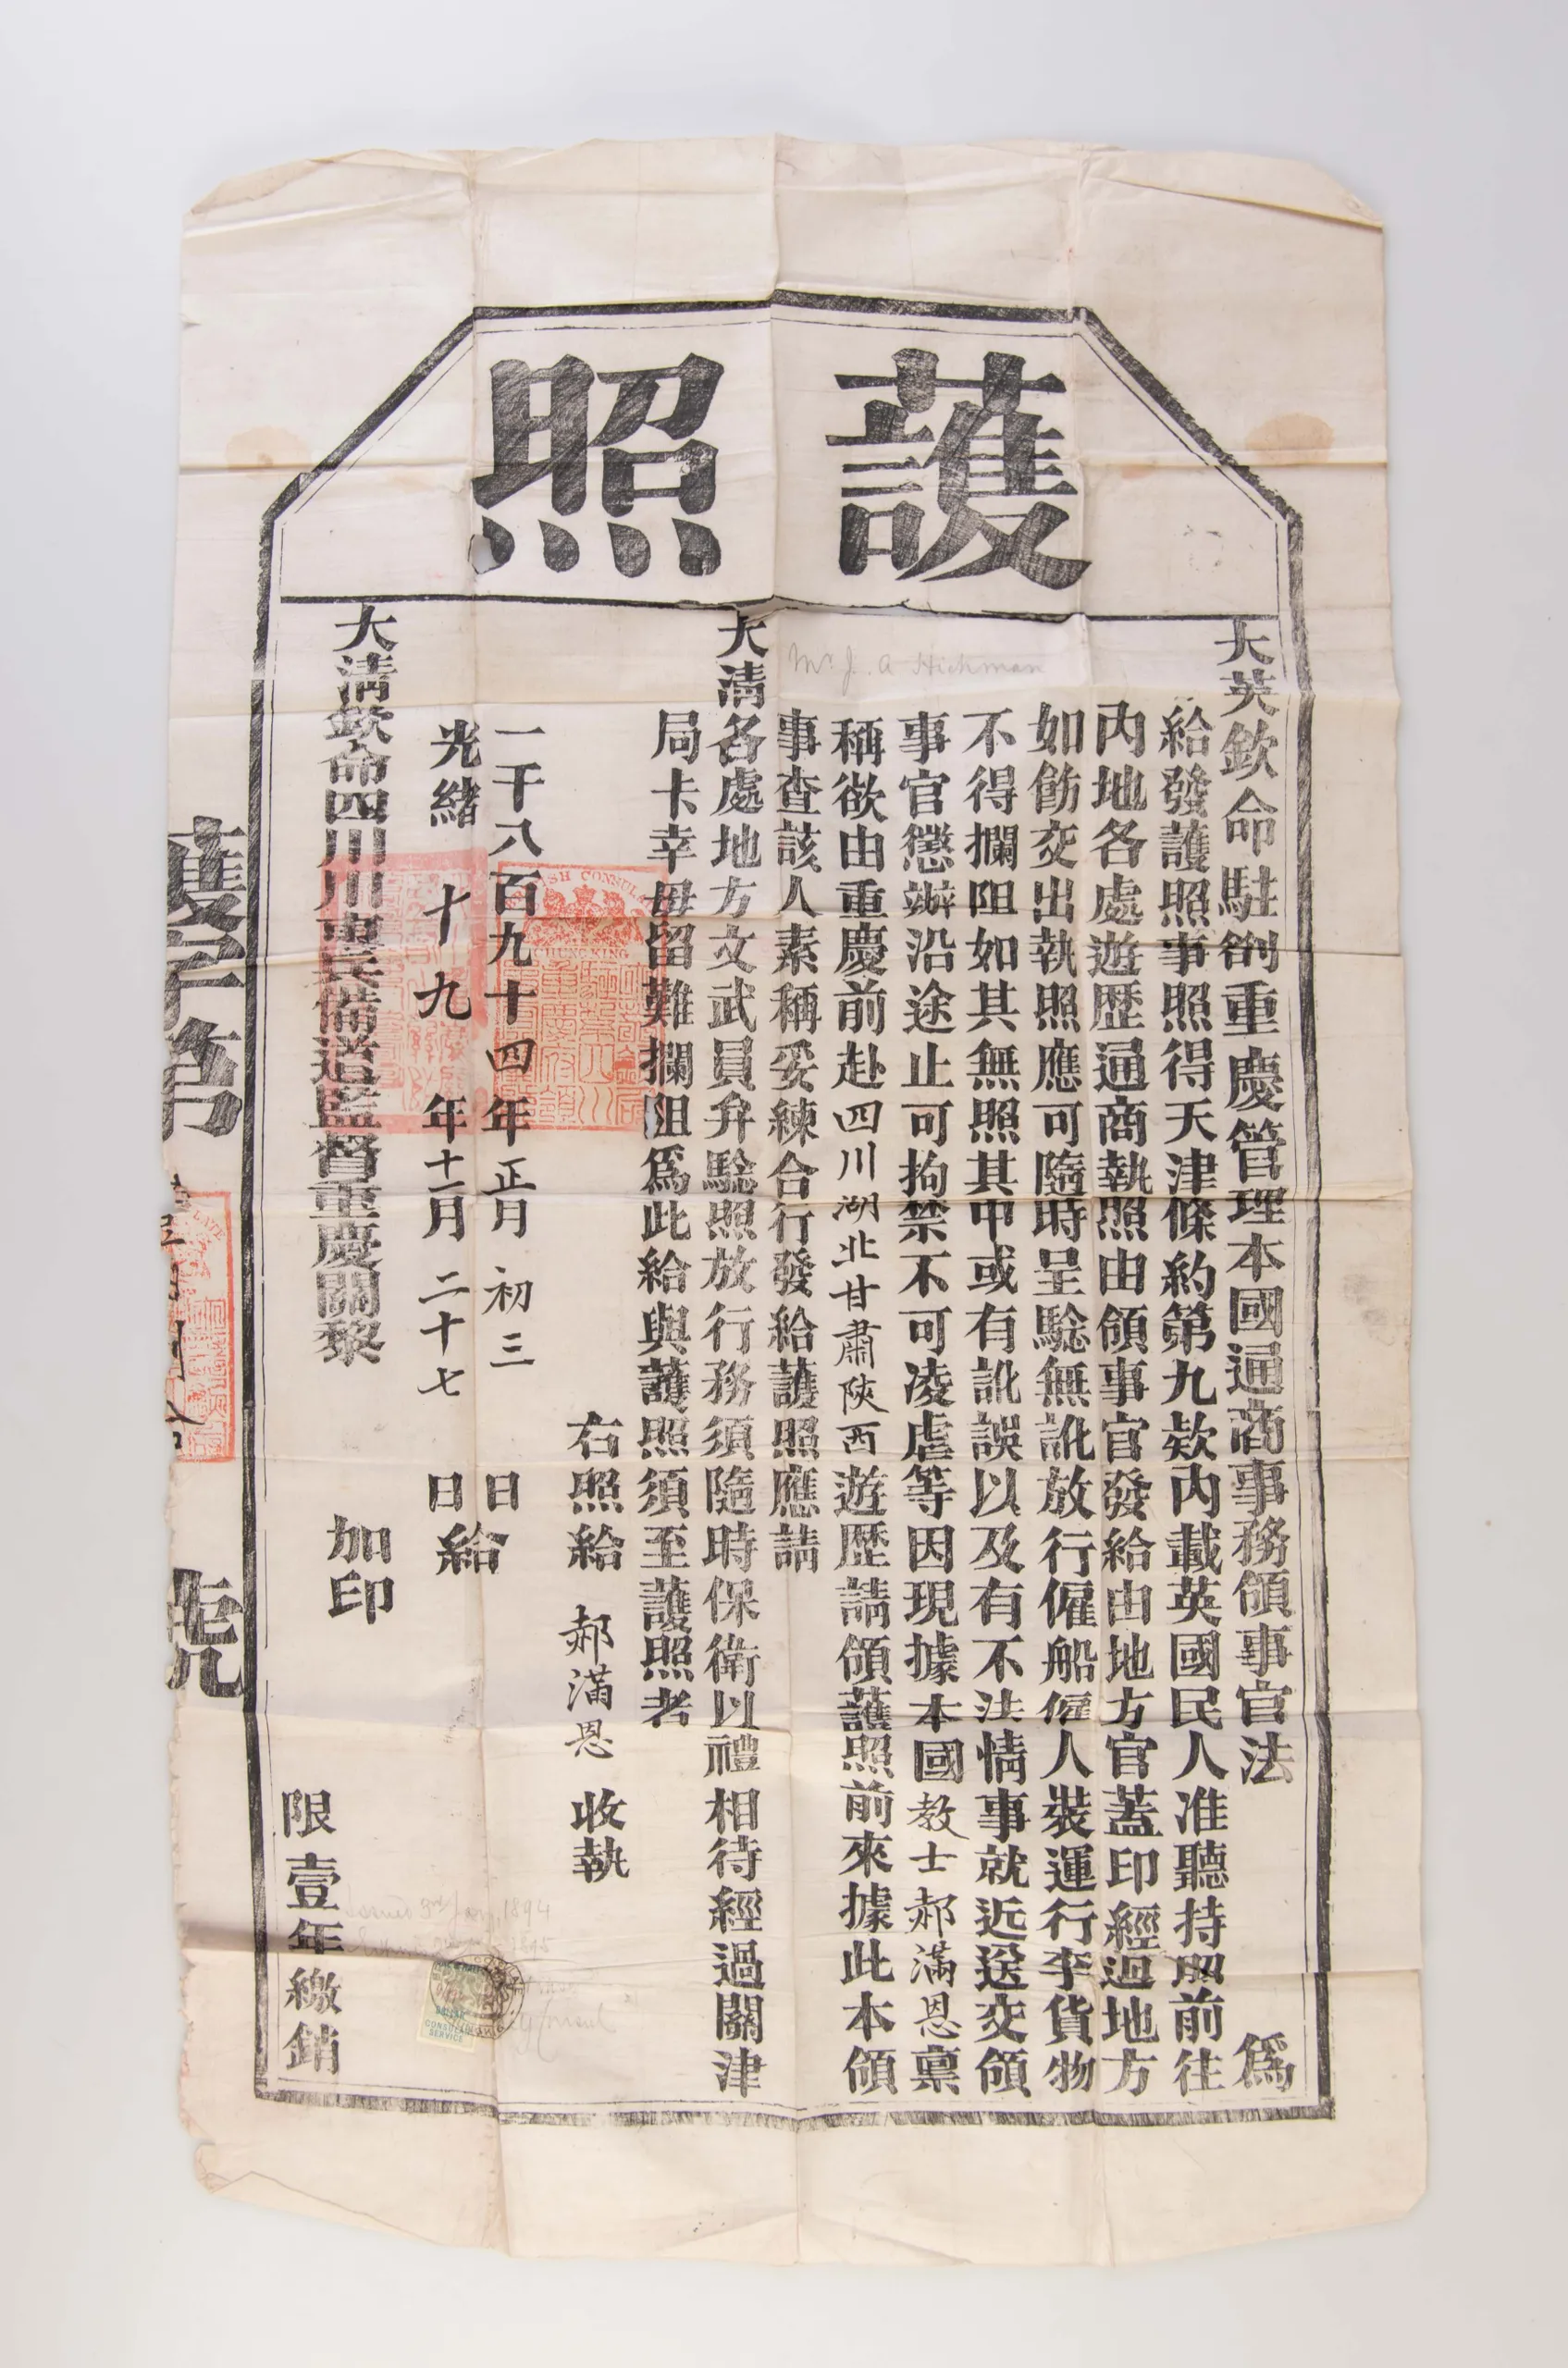 護照
大英欽命駐劄重慶管理本國通商事務領事官法 爲
給發護照事照得天津條約第九欵內載英國民人准聽持照前往
內地各處遊歷通商執照由領事官發給由地方官蓋印經過地方
如飭交出執照應可隨時呈騐無訛放行僱船僱人裝運行李貨物
不得攔阻如其無照其中或有訛誤以及有不法情事就近送交領
事官懲辦沿途止可拘禁不可凌虐等因現據本國教士郝滿恩稟
稱欲由重慶前赴四川湖北甘肅陝西遊歷請領護照前來據此本領
事查該人素稱妥練合行發給護照應請
Mr. J. A Hickman
大清各處地方文武員弁騐照放行務須隨時保衛以禮相待經過關津
局卡幸毋留難攔阻爲此給與護照須至護照者
右照給 郝滿恩 收執
一千八百九十四年正月初三日
光緒十九年十一月二十七日給
CHUNGKING
大清欽命四川川東兵備道監督重慶關黎 加印
限壹年繳銷
Issued 3rd Jany. 1894
CONSULAR SERVICE
護字第 號